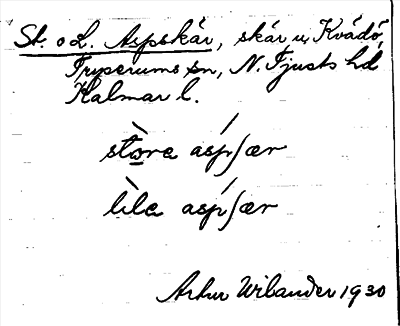 St. o L. Aspskär, skär u, Kvädö,
Tryserums sn, N. Tjusts hd
Kalmar l.
stòra asp/ʃær
lìla asp/ʃær
Artur Wilander 1930